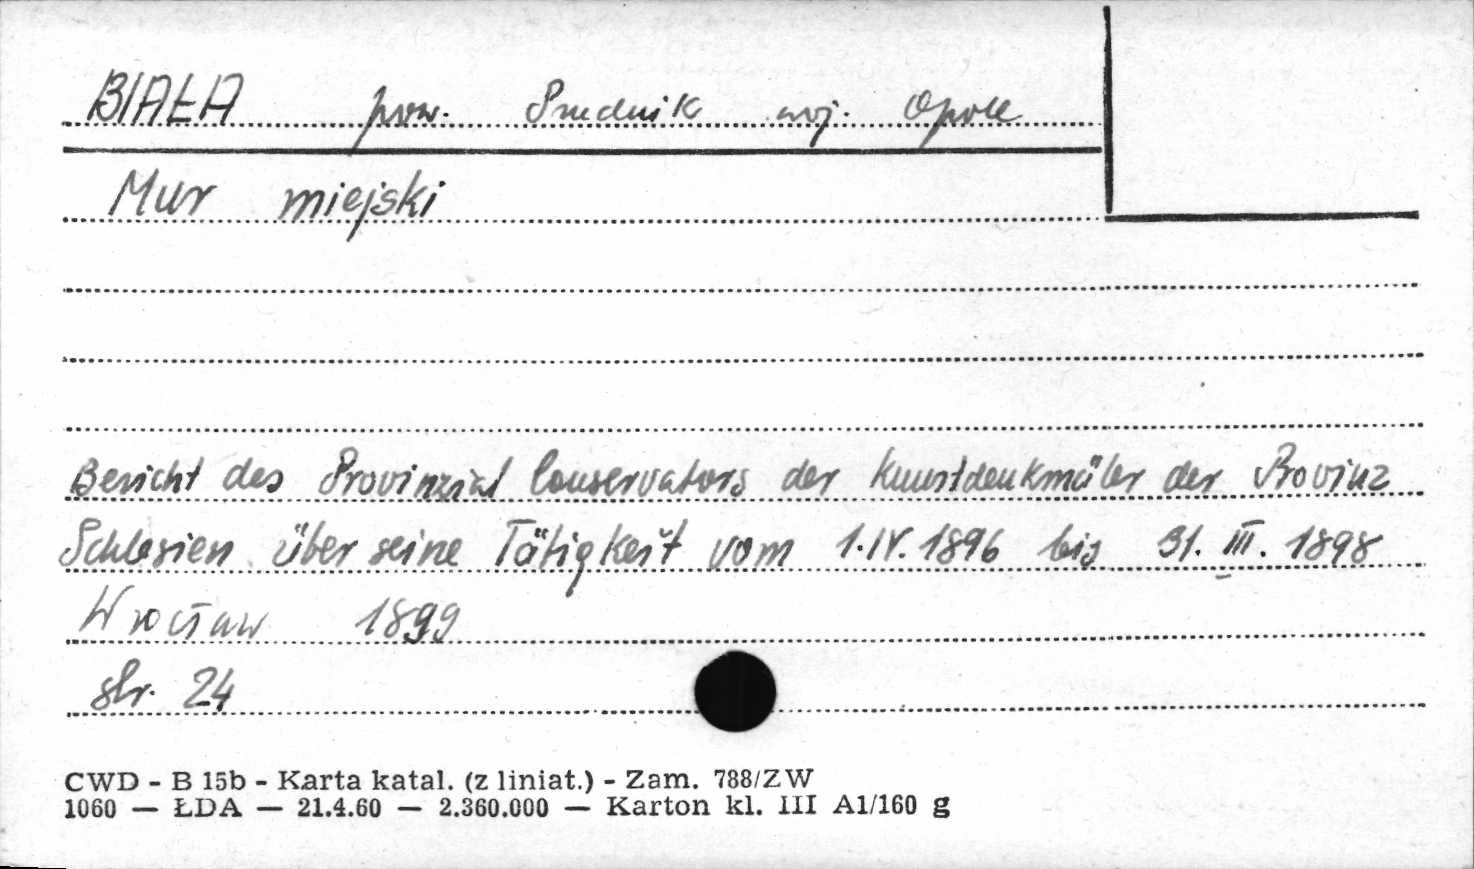 BIAŁA pow. Prudnik woj. Opole
Mur miejski
Bericht des Provinzial Conservators der Kunstdenkmäler der Provinz
Schlesien über seine Tätigkeit vom 1.IV.1896 bis 31.III.1898
Wrocław 1899
str. 24
CWD - B 15b - Karta katal. (z liniat.) - Zam. 788/ZW
1060 — ŁDA — 21.4.60 — 2.360.000 — Karton kl. III A1/160 g